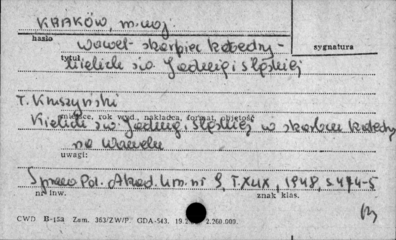 KRAKÓW, m. woj.
hasło
Wawel - skarbiec katedry -
sygnatura
tytuł
kielich św. Jadwigi śląskiej
T. Kruszyński
miejsce, rok wyd., nakładca, format, objętość
Kielich św. Jadwigi śląskiej w skarbcu katedry
na Wawelu
uwagi:
Spraw. Pol. Akad. Um. nr 9, T. XLIX, 1948, s. 474-5
nr inw.
znak klas.
CWD B-15a Zam. 363/ZW/P GDA-543. 2.200.000.